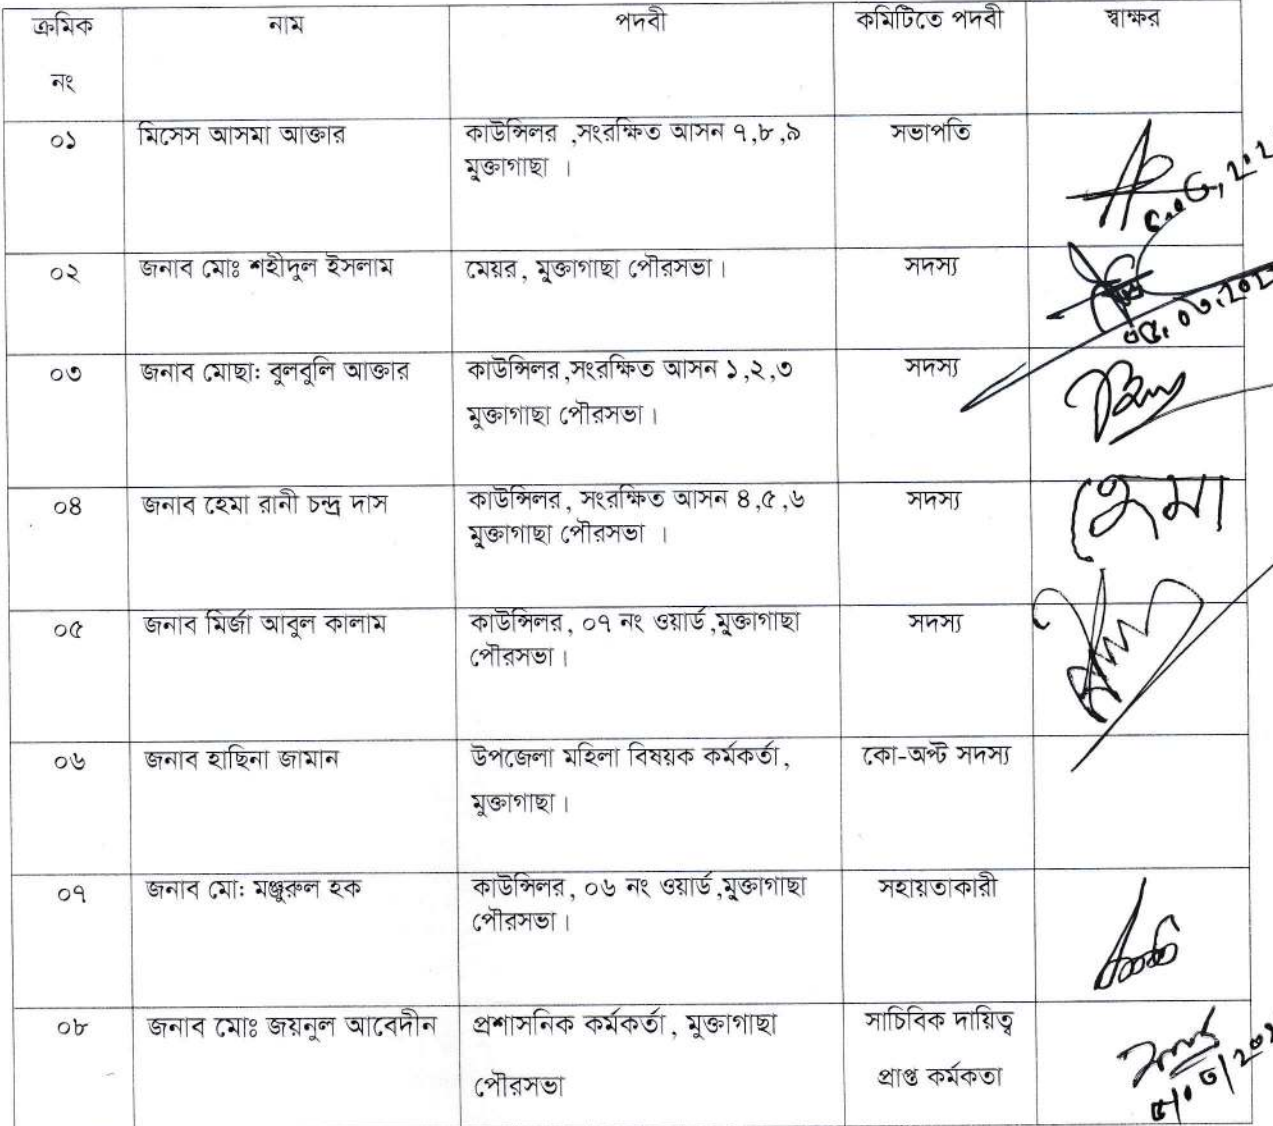 ক্রমিক নং	নাম	পদবী	কমিটিতে পদবী	স্বাক্ষর
০১	মিসেস আসমা আক্তার	কাউন্সিলর ,সংরক্ষিত আসন ৭,৮,৯	সভাপতি
মুক্তাগাছা ।
০২	জনাব মোঃ শহীদুল ইসলাম	মেয়র, মুক্তাগাছা পৌরসভা।	সদস্য
০৩	জনাব মোছা: বুলবুলি আক্তার	কাউন্সিলর,সংরক্ষিত আসন ১,২,৩	সদস্য
মুক্তাগাছা পৌরসভা।
০৪	জনাব হেমা রানী চন্দ্র দাস	কাউন্সিলর, সংরক্ষিত আসন ৪,৫,৬	সদস্য	হেমা
মুক্তাগাছা পৌরসভা ।
০৫	জনাব মির্জা আবুল কালাম	কাউন্সিলর, ০৭ নং ওয়ার্ড,মুক্তাগাছা	সদস্য
পৌরসভা।
০৬	জনাব হাছিনা জামান	উপজেলা মহিলা বিষয়ক কর্মকর্তা,	কো-অপ্ট সদস্য
মুক্তাগাছা।
০৭	জনাব মো: মঞ্জুরুল হক	কাউন্সিলর, ০৬ নং ওয়ার্ড,মুক্তাগাছা	সহায়তাকারী
পৌরসভা।
০৮	জনাব মোঃ জয়নুল আবেদীন	প্রশাসনিক কর্মকর্তা, মুক্তাগাছা	সাচিবিক দায়িত্ব
পৌরসভা	প্রাপ্ত কর্মকতা